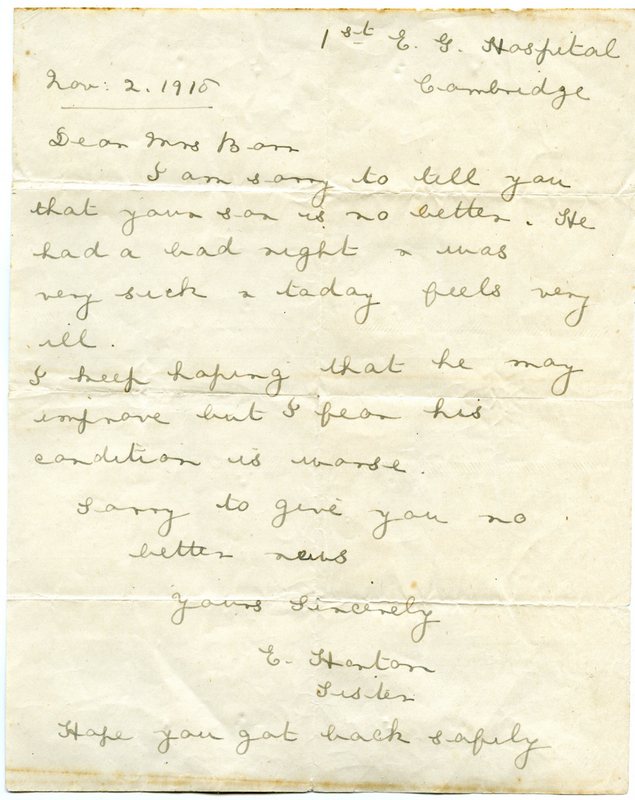 1st E. G. Hospital
Cambridge
Nov: 2. 1915
Dear Mrs Barr
I am sorry to tell you
that your son is no better. He
had a bad night & was
very sick & today feels very
ill.
I keep hoping that he may
improve but I fear his
condition is worse.
Sorry to give you no
better news
Yours Sincerely
E. Horton
Sister
Hope you got back safely